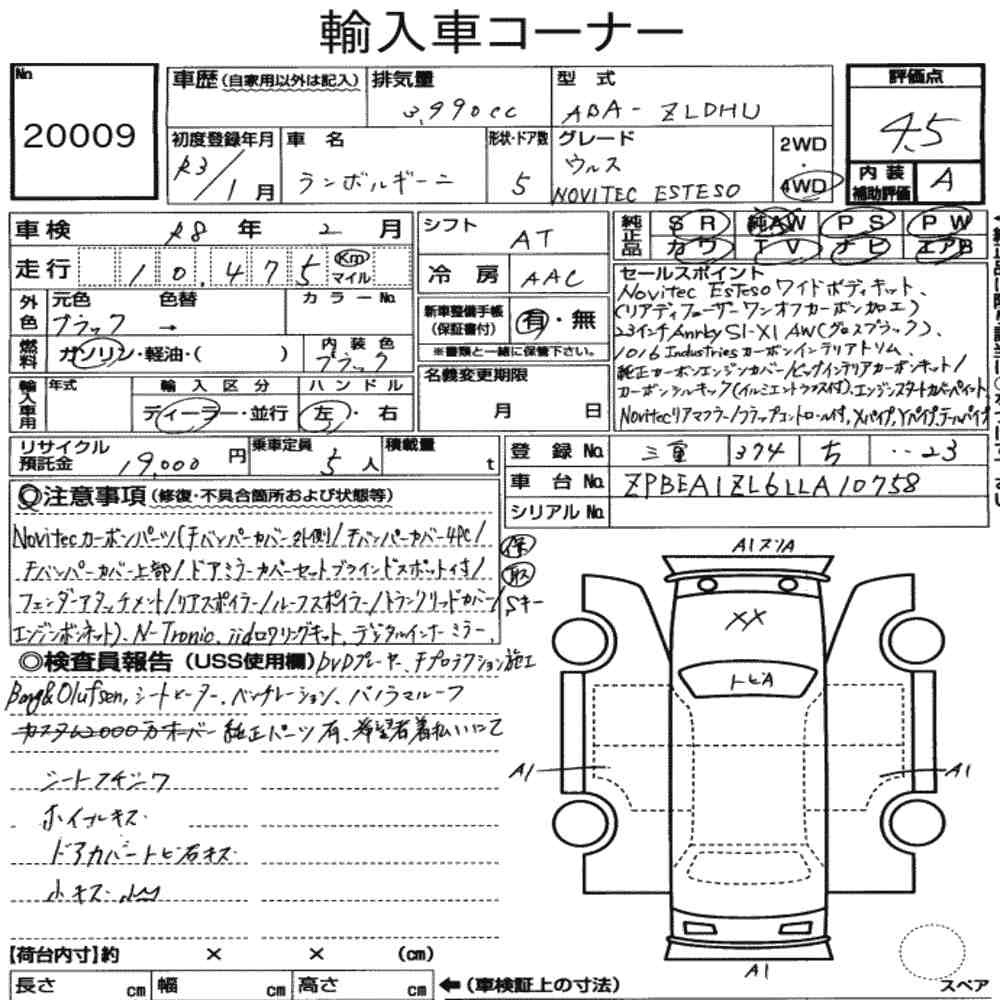 輸入車コーナー
No 20009
車歴(自家用以外は記入)
排気量 3,990cc
型式 ABA-ZLDHU
評価点 4.5
初度登録年月 R3/1月
車名 ランボルギーニ
形状・ドア数 5
グレード ウルス
NOVITEC ESTESO
2WD
・
4WD
内装補助評価 A
車検 R8年 2月
走行 10,475 Km マイル
シフト AT
冷房 AAC
純正品 SR 純AW PS PW
カワ TV ナビ エアB
外色 元色 色替 カラーNo.
ブラック →
燃料 ガソリン・軽油・( )
内装色 ブラック
新車整備手帳(保証書付) 有・無
※書類と一緒に保管下さい。
セールスポイント
Novitec Estesoワイドボディキット、
(リアディフューザーワンオフカーボン加工)
23インチAnrky S1-X1 AW(グロスブラック)、
1016 Industriesカーボンインテリアトリム、
純正カーボンエンジンカバー/ビッグインテリアカーボンキット/
カーボンシルキック(イルミエントランス付)、エンジンスタートカバーペイント
Novitecリアマフラー/フラップコントロール付、Xパイプ、Yパイプ、テールパイプ
輸入車用 年式
輸入区分 ディーラー・並行
ハンドル 左・右
名義変更期限
月 日
リサイクル預託金 19,000円
乗車定員 5人
積載量 t
登録No. 三重 374 ち ‥23
車台No. ZPBEA1ZL6LLA10758
シリアルNo.
◎注意事項(修復・不具合箇所および状態等)
Novitecカーボンパーツ(Fバンパーカバー外側/Fバンパーカバー4PC/
Fバンパーカバー上部/ドアミラーカバーセットブラインドスポット付/
フェンダーアタッチメント/リアスポイラー/ルーフスポイラー/トランクリッドカバー/
エンジンボンネット)、N-Tronic、iidロワリングキット、デジタルインナーミラー、
保
取
Sキー
◎検査員報告(USS使用欄) DVDプレーヤー、Fプロテクション施工
Bang&Olufsen、シートヒーター、ベンチレーション、パノラマルーフ
カスタム2000万オーバー 純正パーツ有、希望者着払いにて
シートフチシワ
ホイールキズ
ドアカバートビ石キズ
小キズ・凹
A1スリA
XX
トビA
A1
A1
A1
【荷台内寸】約 × × (cm)
長さ cm 幅 cm 高さ cm ←(車検証上の寸法)
スペア